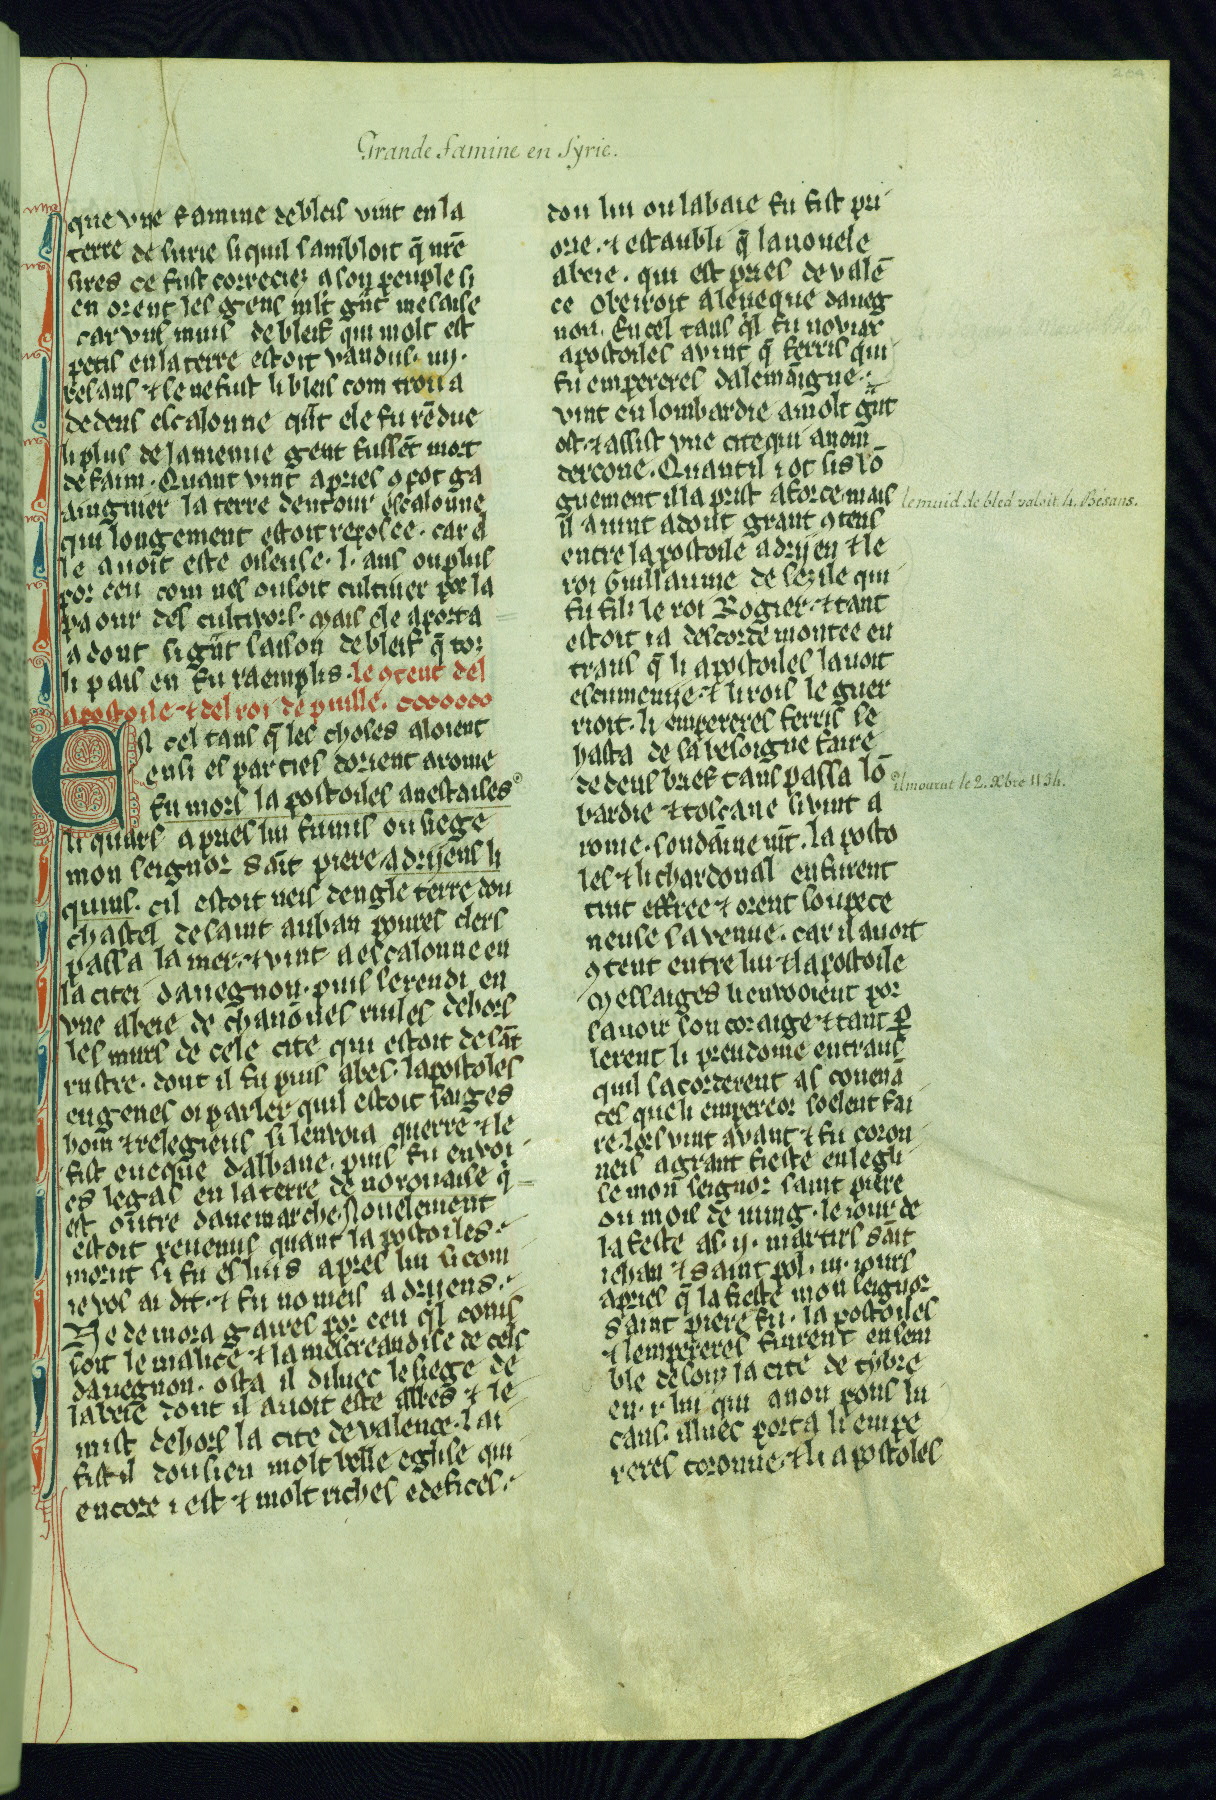 Grande famine en Syrie.
que vne famine de bleif vint en la
terre de surie si quil sambloit q̄ nrē
sires ce fust correciez a son peuple si
en orent les gens ml't gn̄t mesaise
car vns muis de bleif qui molt est
petis en la terre estoit vandus .iiij.
besans ⁊ se ne fust li bleis com troua
dedens escalonne qn̄t ele fu rēdue
li plus de la menue gent fussēt mort
de faim. Quant vint apries ꝯ pot ga
aingnier la terre dentour escalonne
qui longement estoit reposee. car e
le auoit este oiseuse .l. ans ou plus
por ceu com nes ousoit cultiuer por la
paour des cultivors. mais ele aporta
adont si gn̄t saison de bleif q̄ toz
li pais en fu raemplis. le ꝯtent del
apostoile ⁊ del roi de puille.
En cel tans q̄ les choses aloient
ensi es parties dorient a rome
fu mors lapostoiles anestaises
li quars apries lui fu mis ou siege
mon seignor saīt piere adrijens li
quins. cil estoit neis dengleterre dou
chastel de saint auban poures clers
passa la mer. ⁊ vint a escalonne en
la citei dauegnon. puis se rendi en
vne abeie de chanōnes riules dehors
les murs de cele cite qui estoit de sāt
rustre. dont il fu puis abes. lapostoles
eugenes oi parler quil estoit saiges
hom ⁊ relegieus si lenvoia querre ⁊ le
fist eueque dalbane. puis fu envoi
es legas en la terre de norouaise q̄
est oūtre danemarche. Nouelement
estoit reuenus quant lapostoiles
morut si fu eslius apres lui si com
ie vos ai dit. ⁊ fu nomeis adrijens.
Ne demora gaires por ceu q̄l conis
soit le malice ⁊ la mescreandise de cels
dauegnon. osta il diluec le siege de
labeie dont il auoit este abbes ⁊ le
mist dehors la cite de valence. lai
fist il dou lieu molt belle eglise qui
encore i est ⁊ molt riches edefices.
dou liu ou labaie fu fist pri
orie. ⁊ establi q̄ la nouele
abeie. qui est pries de valē
ce obeiroit a leueque daueg
non. En cel tans q̄l fu noviax
apostoiles avint q̄ ferris qui
fu empereres dalemaīgne
vint en lombardie a molt gn̄t
ost. ⁊ assist vne cite qui a nom
dertone. Quant il i ot sis lō
guement il la prist a force. mais
il auint adont grant ꝯtens
entre lapostoile adrijen ⁊ le
roi Guillaume de sezile qui
fu fili le roi Rogier. ⁊ tant
estoit ia descorde montee en
traus q̄ li apostoiles lauoit
escumenije ⁊ li rois le guer
rioit. li empereres ferris se
hasta de sa besoigne faire
dedens brief tans passa lō
bardie ⁊ toscane si vint a
rome. soudainemt̄. laposto
les ⁊ li chardonal en furent
tuit effree ⁊ orent soupece
neuse sa venue. car il auoit
ꝯtent entre lui ⁊ lapostoile
messaiges li envoient por
savoir son coraige ⁊ tant ꝑ
lerent li preudome entraus
quil sacorderent as couenā
ces que li empereor soelent fai
re. lors vint avant ⁊ fu coron
neis a grant fieste en legli
se mon seignor saint piere
ou mois de iung. le iour de
la feste as .ij. martirs saīt
iehan ⁊ saint pol. .iij. iours
apries q̄ la fieste mon seignor
saint piere fu. lapostoiles
⁊ lempereres furent ensem
ble desour la cite de tybre
en .i. liu qui a non pons lu
cans. illuec porta li empe
reres coronne. ⁊ li apostoles
le muid de bled valoit 4. Besans.
il mourut le 2. Xbre 1154.